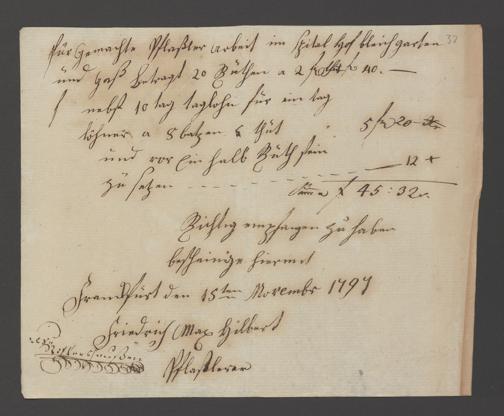 für gemachte Pflaster arbeit im Spital Hof bleichgarten 32
und Hoff betragt 20 Ruthen a 2 f thut f 40.—
nebst 10 tag taglohn für ein tag
löhner a 8 batzen thut 5 f 20
und vor Ein halb Ruth stein
zu setzen - - - - 12
Suma f 45:32
Richtig empfangen zu haben
bescheinige hiermit
Frankfurt den 15ten Novembr 1797
Friedrich Max Hilbert
Pflasterer